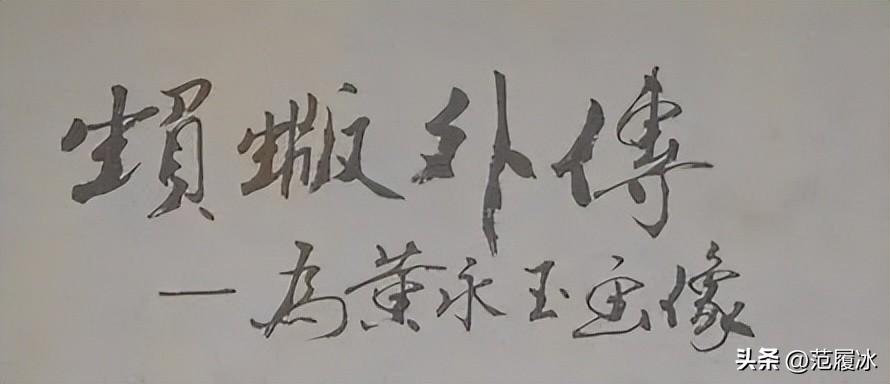 蝜蝂外傳
—為黄永玉画像
头条 @范履冰